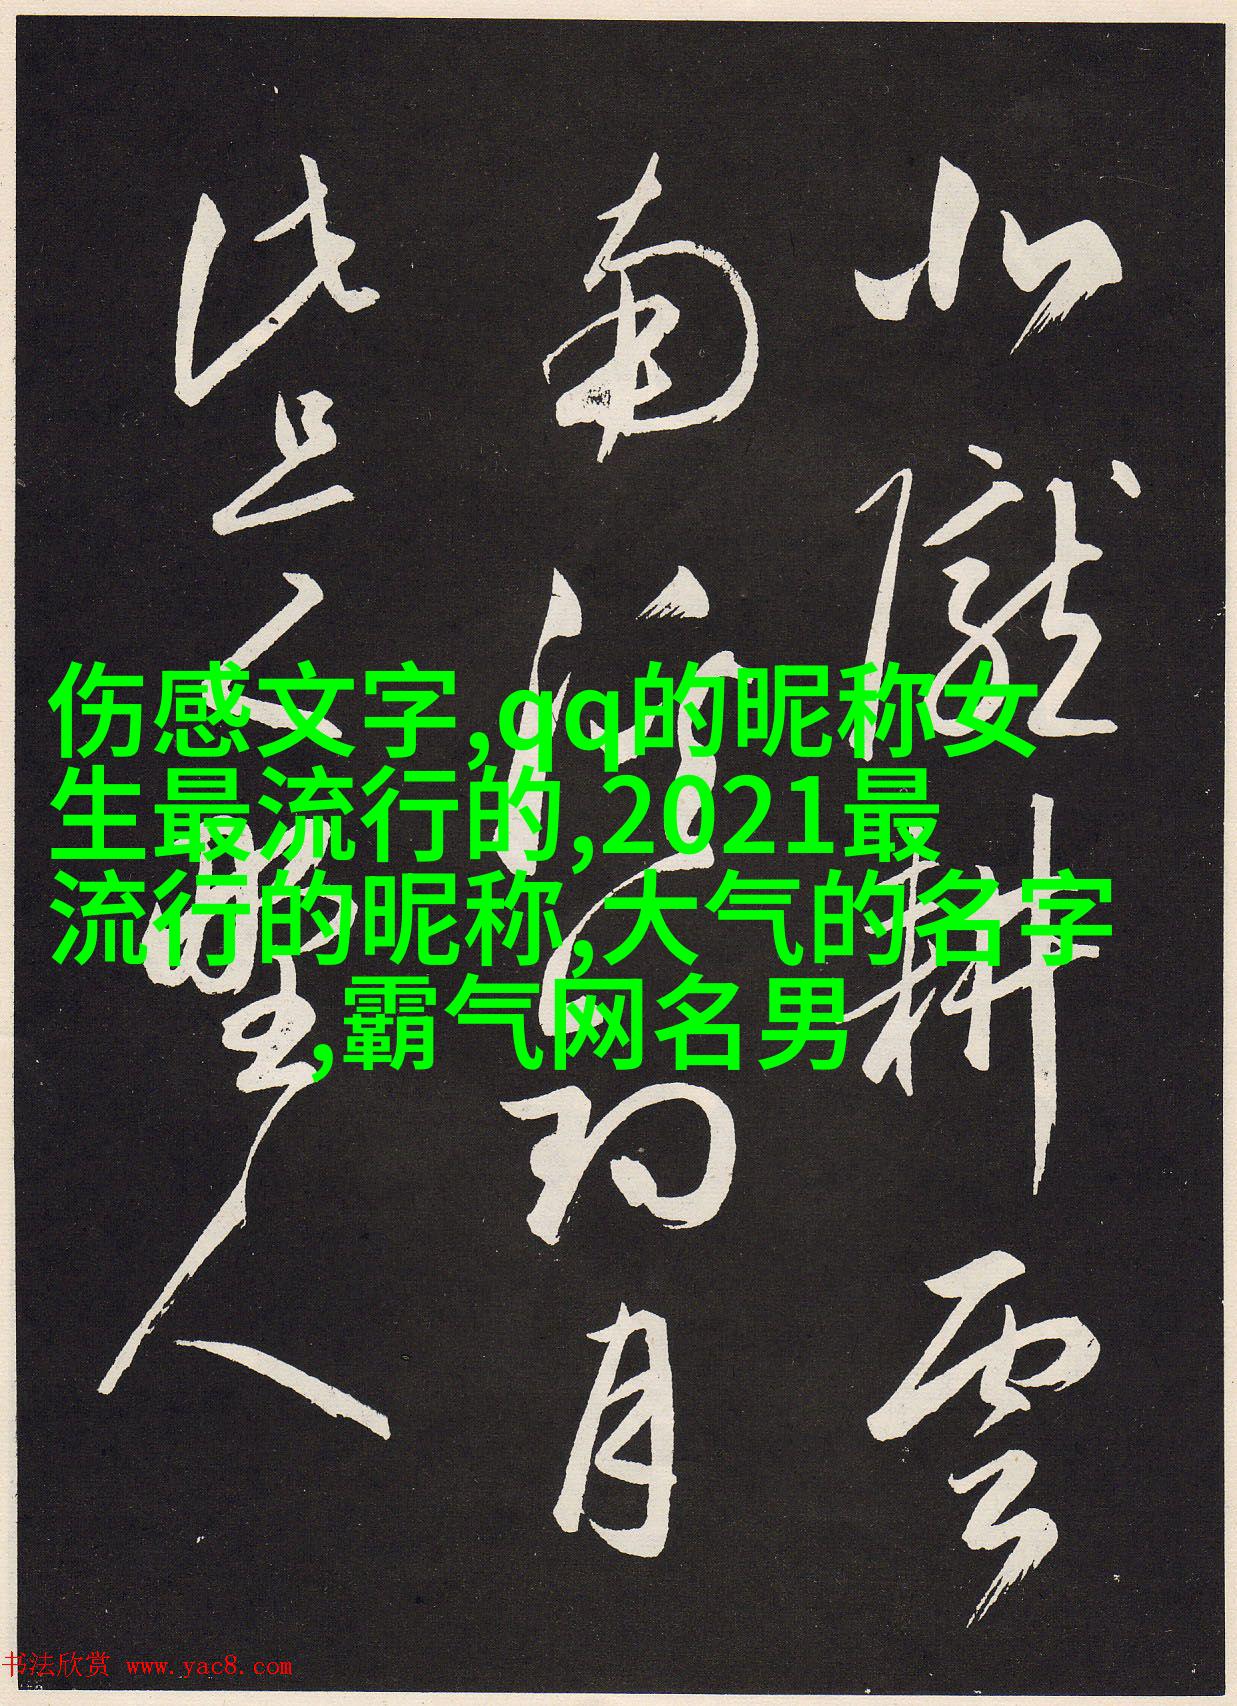 北隴耕雲
南溪釣月
此是野人
伤感文字,qq的昵称女
生最流行的,2021最
流行的昵称,大气的名字
,霸气网名男
书法欣赏 www.yac8.com